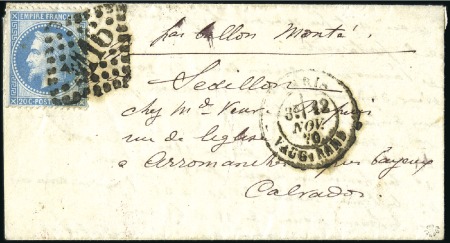 EMPIRE FRANC
20 C POSTE
Par Ballon Monté
Sédillon
chez Mde Veuve
rue de l'église
à Arromanches près Bayeux
Calvados
PARIS
3E 12
NOV.
70
VAUGIRARD